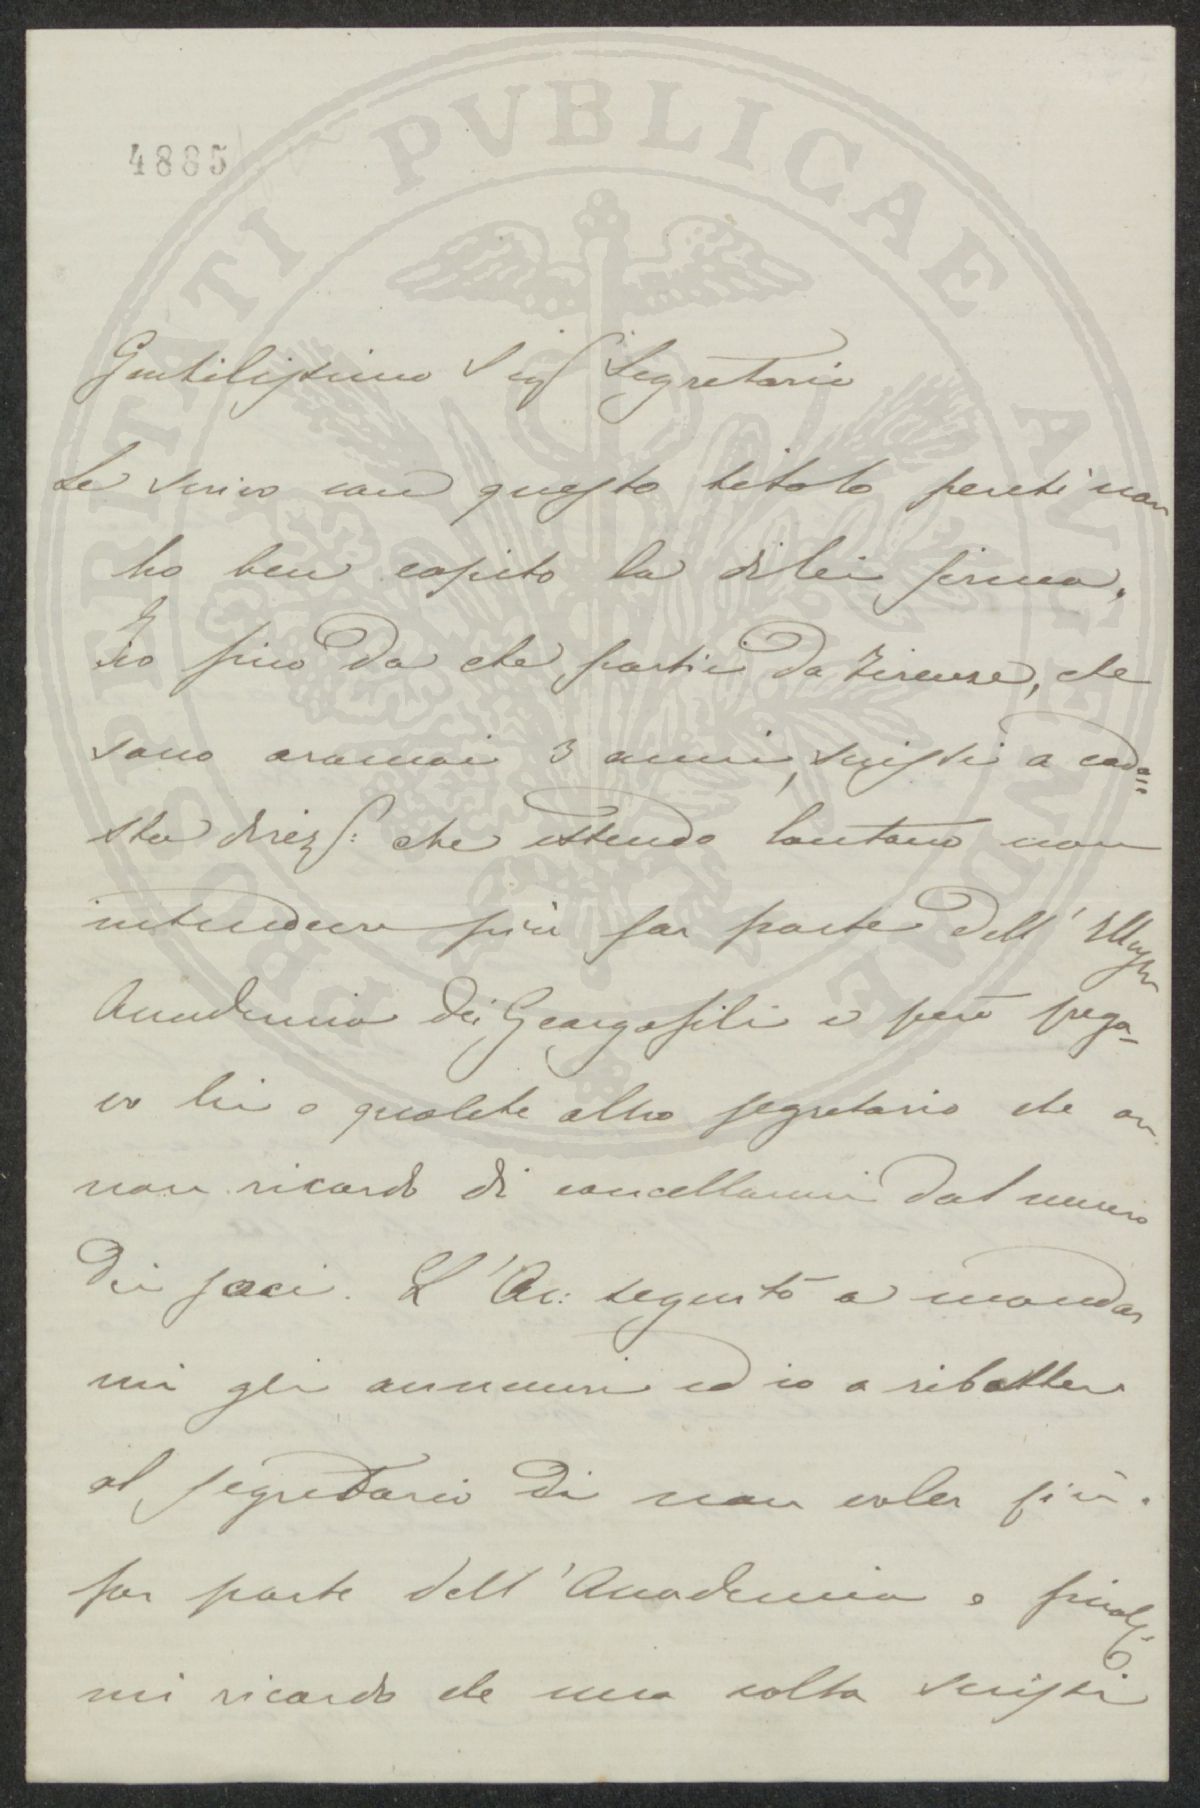 PROSPERITATI PVBLICAE AVGENDAE
4885
Gentilissimo Sigr Segretario
Le scrivo con questo titolo perchè non
ho ben capito la di lei firma.
Io fino da che partii da Firenze, che
sono oramai 3 anni, scrissi a code=
sta direz: che essendo lontano non
intendeva più far parte dell'
Accademia dei Georgofili e però prega-
vo lei o qualche altro segretario che or
non ricordo di cancellarmi dal numero
dei soci. L'Ac: seguitò a mandar
mi gli annunzi ed io a ribatter
al segretario di non voler più
far parte dell'Accademia e
mi ricordo che una volta scrissi